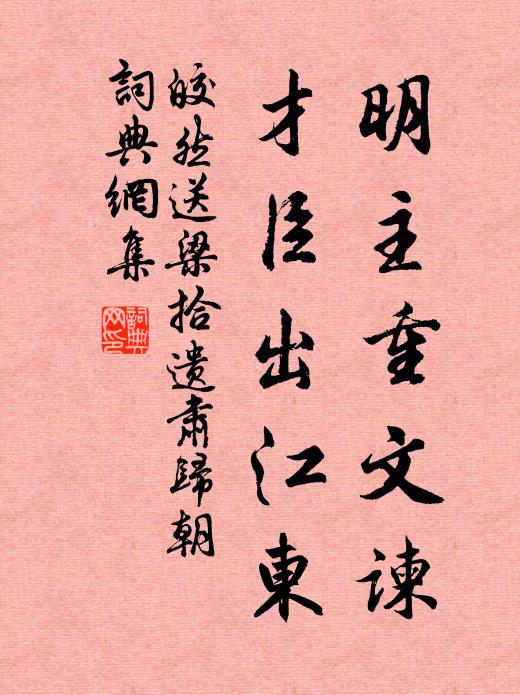 明主重文諫
才臣出江東
皎然送梁拾遺肅歸朝
詞典網集
詞典网印